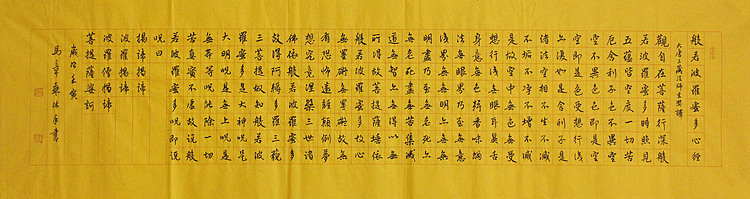 般若波羅蜜多心經
大唐三藏法師玄奘譯
觀自在菩薩行深般
若波羅蜜多時照見
五蘊皆空度一切苦
厄舍利子色不異空
空不異色色即是空
空即是色受想行識
亦復如是舍利子是
諸法空相不生不滅
不垢不淨不增不減
是故空中無色無受
想行識無眼耳鼻舌
身意無色聲香味觸
法無眼界乃至無意
識界無無明亦無無
明盡乃至無老死亦
無老死盡無苦集滅
道無智亦無得以無
所得故菩提薩埵依
般若波羅蜜多故心
無罣礙無罣礙故無
有恐怖遠離顛倒夢
想究竟涅槃三世諸
佛依般若波羅蜜多
故得阿耨多羅三藐
三菩提故知般若波
羅蜜多是大神咒是
大明咒是無上咒是
無等等咒能除一切
苦真實不虛故說般
若波羅蜜多咒即說
咒曰
揭諦揭諦
波羅揭諦
波羅僧揭諦
菩提薩婆訶
歲次壬寅